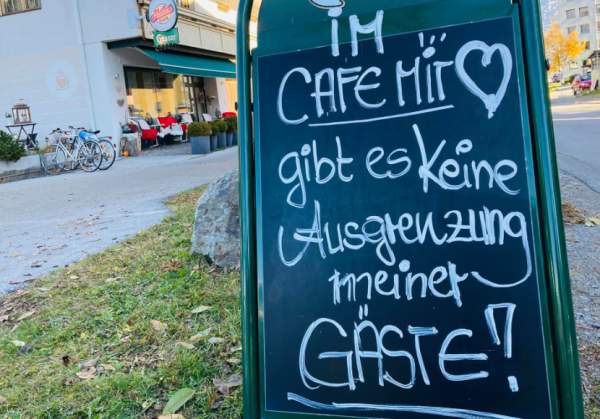 IM
CAFE MIT ♡
gibt es keine
Ausgrenzung
meiner
GÄSTE!